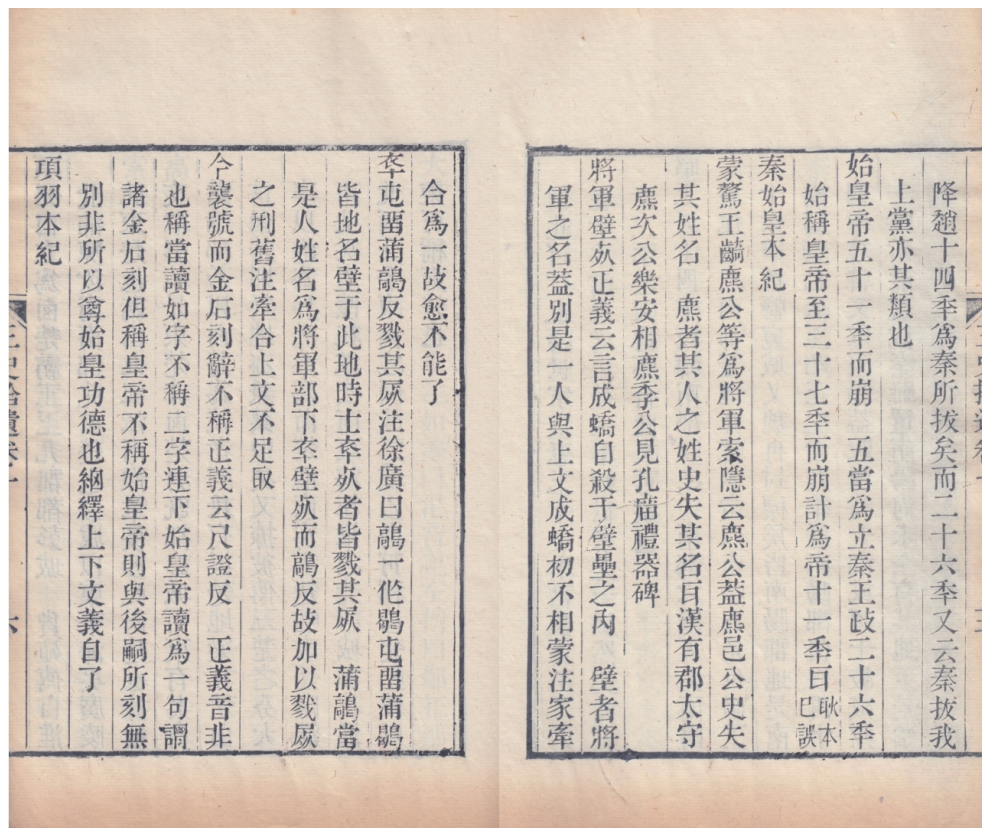 降趙十四季爲秦所拔矣而二十六季又云秦拔我
上黨亦其類也
始皇帝五十一季而崩　五當爲立秦王政二十六季
始稱皇帝至三十七季而崩計爲帝十一季㠯耿本㠯誤
秦始皇本紀
蒙驁王齮麃公等爲將軍索隱云麃公葢麃邑公史失
其姓名　麃者其人之姓史失其名㠯漢有郡太守
麃次公樂安相麃季公見孔庿禮器碑
將軍壁𣦸正義云言成蟜自殺于壁壘之內　壁者將
軍之名葢別是一人與上文成蟜初不相蒙注家牽
合爲一故愈不能了
卒屯畱蒲鶮反戮其屍注徐廣曰鶮一作鶡屯畱蒲鶡
皆地名壁于此地時士卒𣦸者皆戮其屍　蒲鶮當
是人姓名爲將軍部下卒壁𣦸而鶮反故加以戮屍
之刑舊注牽合上文不足取
今襲號而金石刻辭不稱正義云尺證反　正義音非
也稱當讀如字不稱二字連下始皇帝讀爲一句謂
諸金石刻但稱皇帝不稱始皇帝則與後嗣所刻無
別非所以尊始皇功德也紬繹上下文義自了
項羽本紀